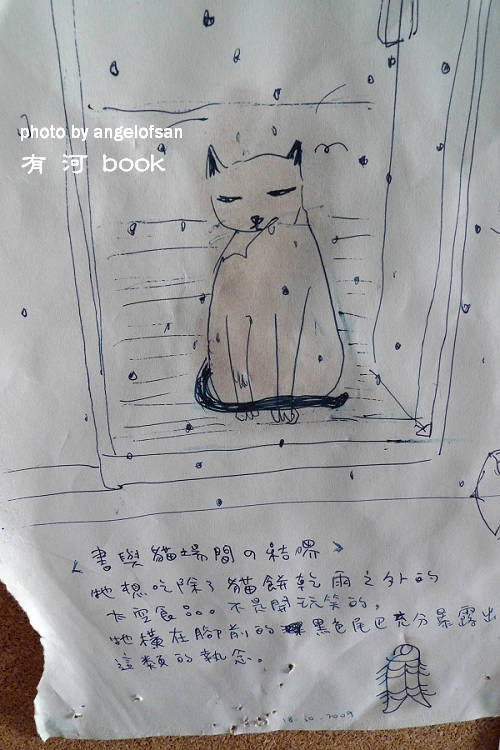 photo by angelofsan
有 河 book
〈書與貓場間の結界〉
牠想吃除了貓餅乾雨之外的
空食。。。不是開玩笑的,
牠橫在腳前的黑色尾巴充分暴露出
這類的執念。
18.10.2009